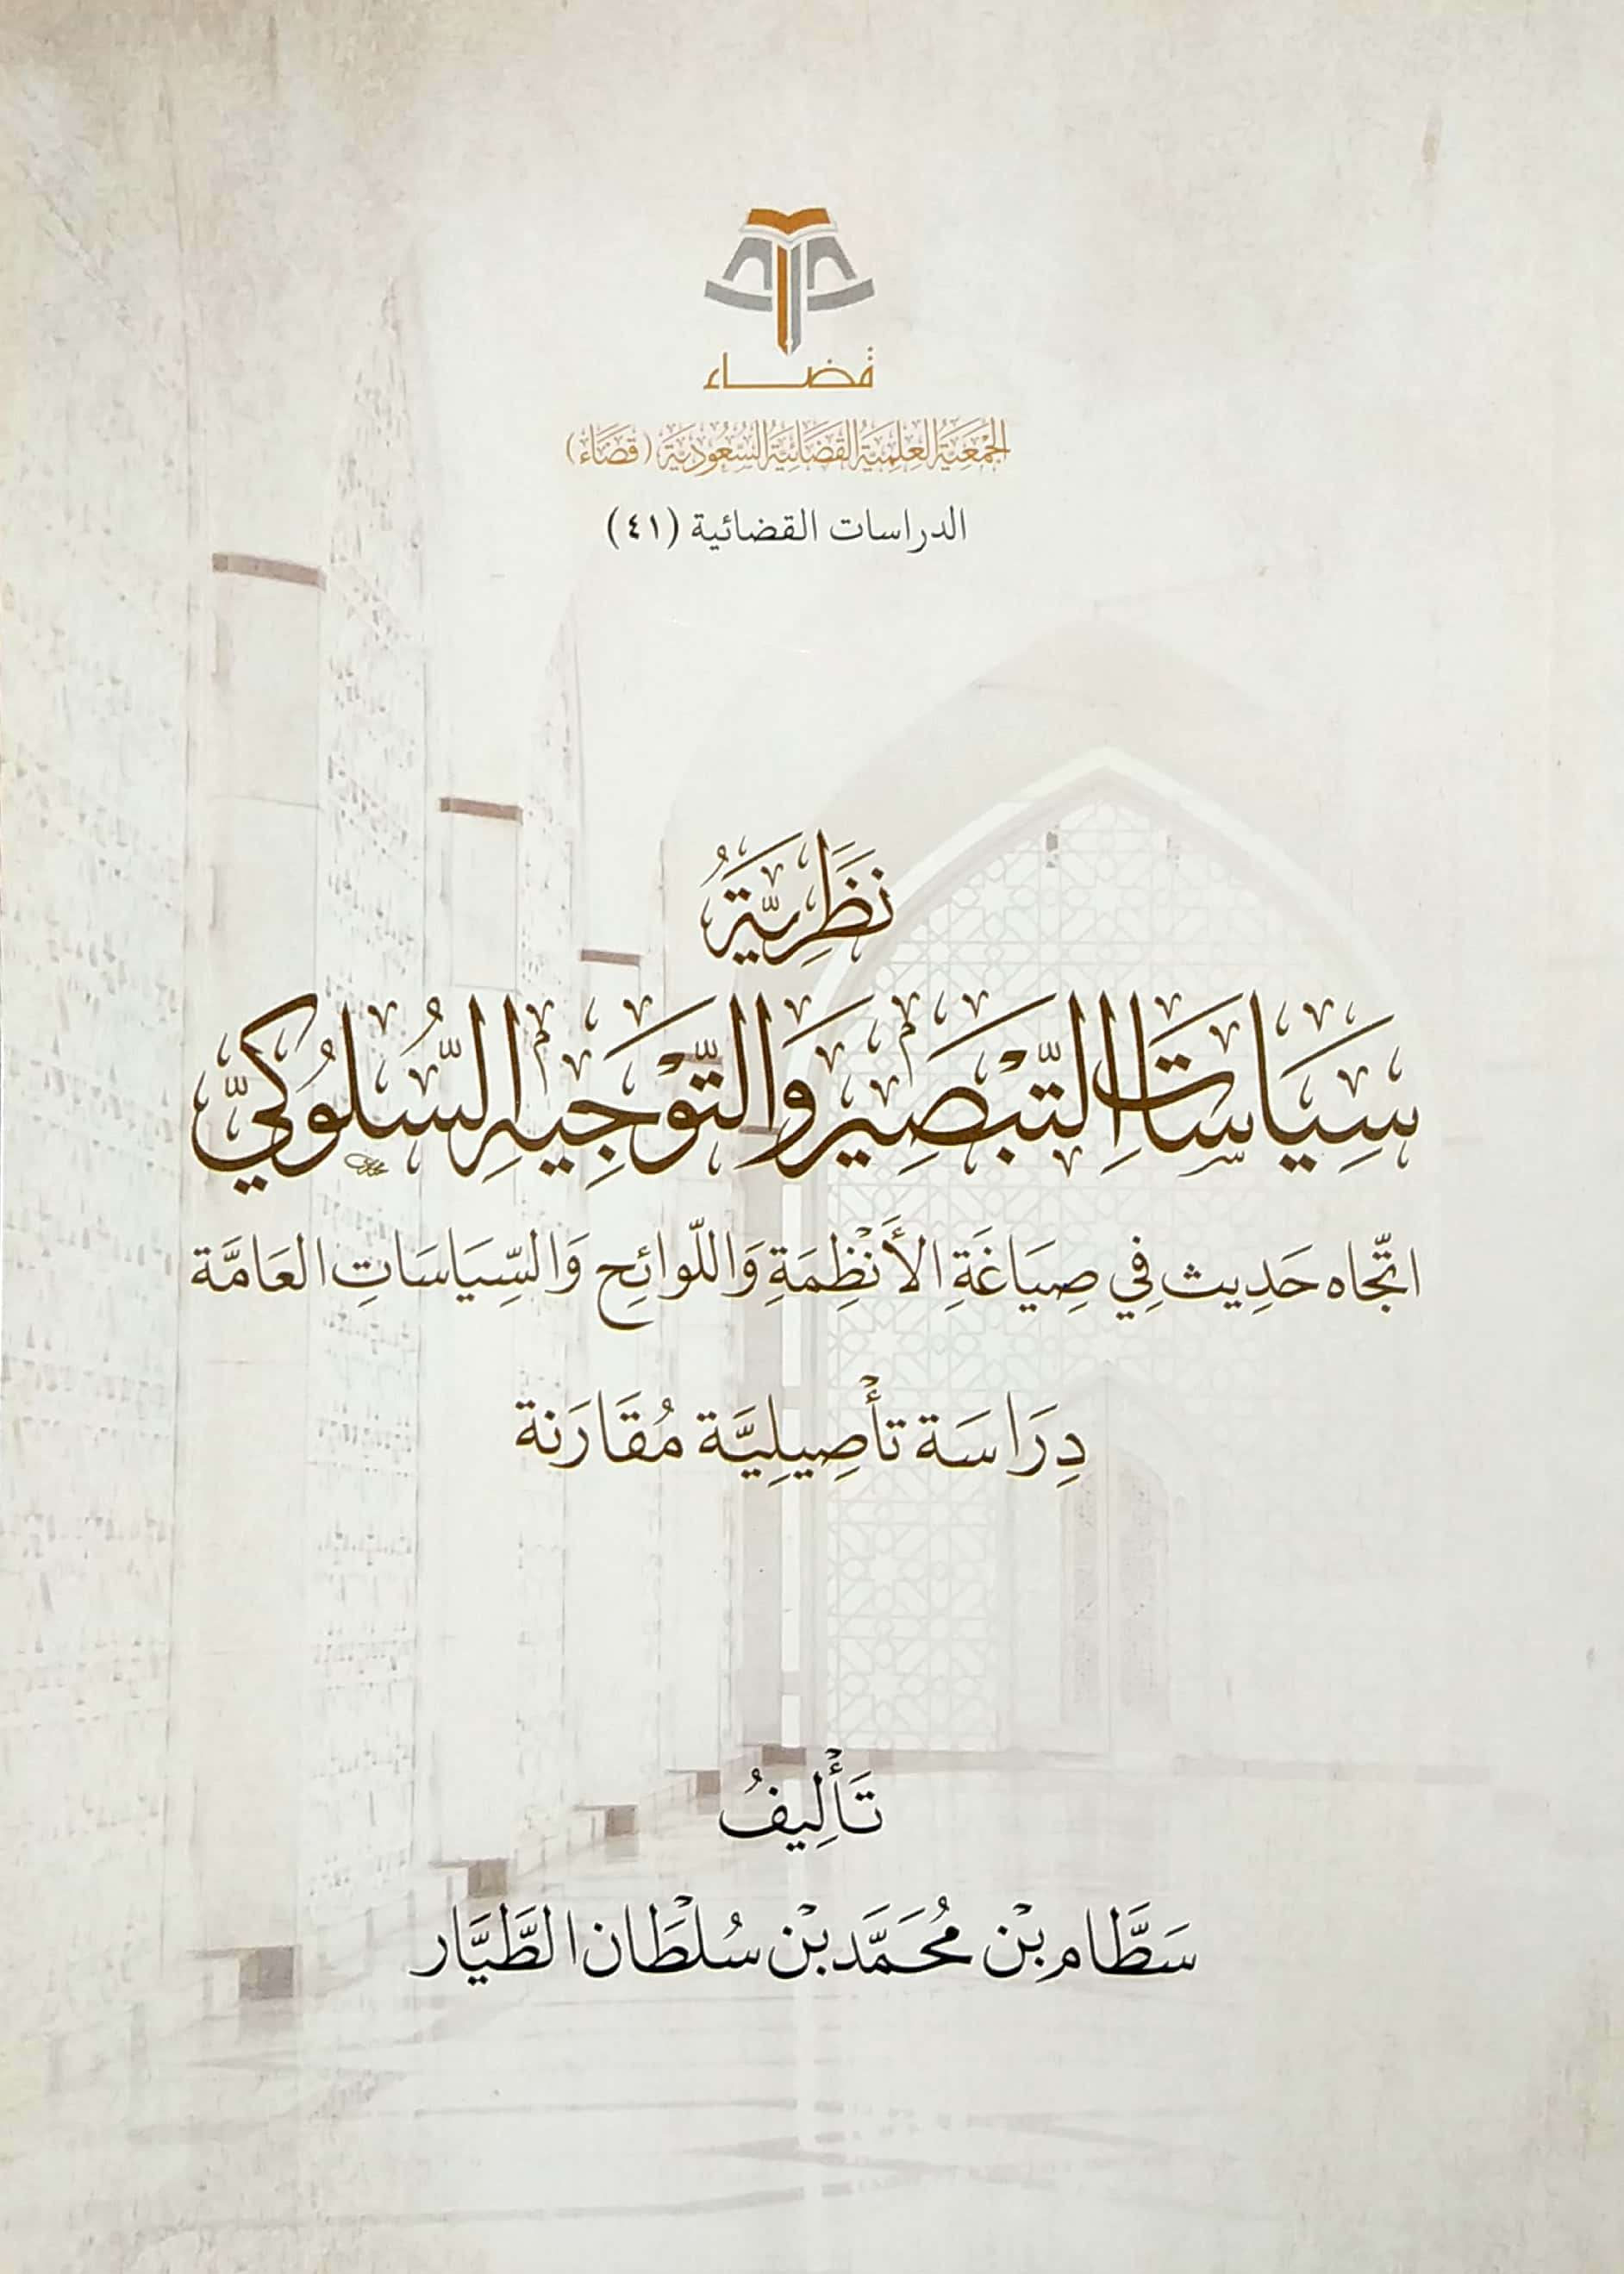 قضاء
الجَمْعِيَّةُ العِلْمِيَّةُ القَضَائِيَّةُ السُّعُودِيَّة (قَضَاء)
الدراسات القضائية (٤١)
نَظَرِيَّةُ
سِيَاسَاتِ التَّبْصِيرِ وَالتَّوْجِيهِ السُّلُوكِيِّ
اتّجَاه حَدِيث فِي صِيَاغَةِ الأَنْظِمَةِ وَاللّوائِح وَالسِّيَاسَاتِ العَامَّة
دِرَاسَة تأْصِيلِيَّة مُقَارَنة
تَأْلِيفُ
سَطَّام بْن مُحَمَّد بْن سُلْطَان الطَّيَّار